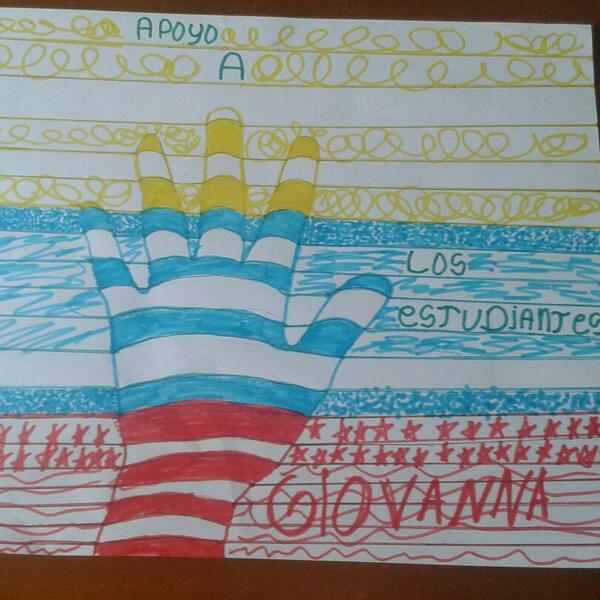 APOYO
A
LOS
eSTUDiANTes
GIOVANNA